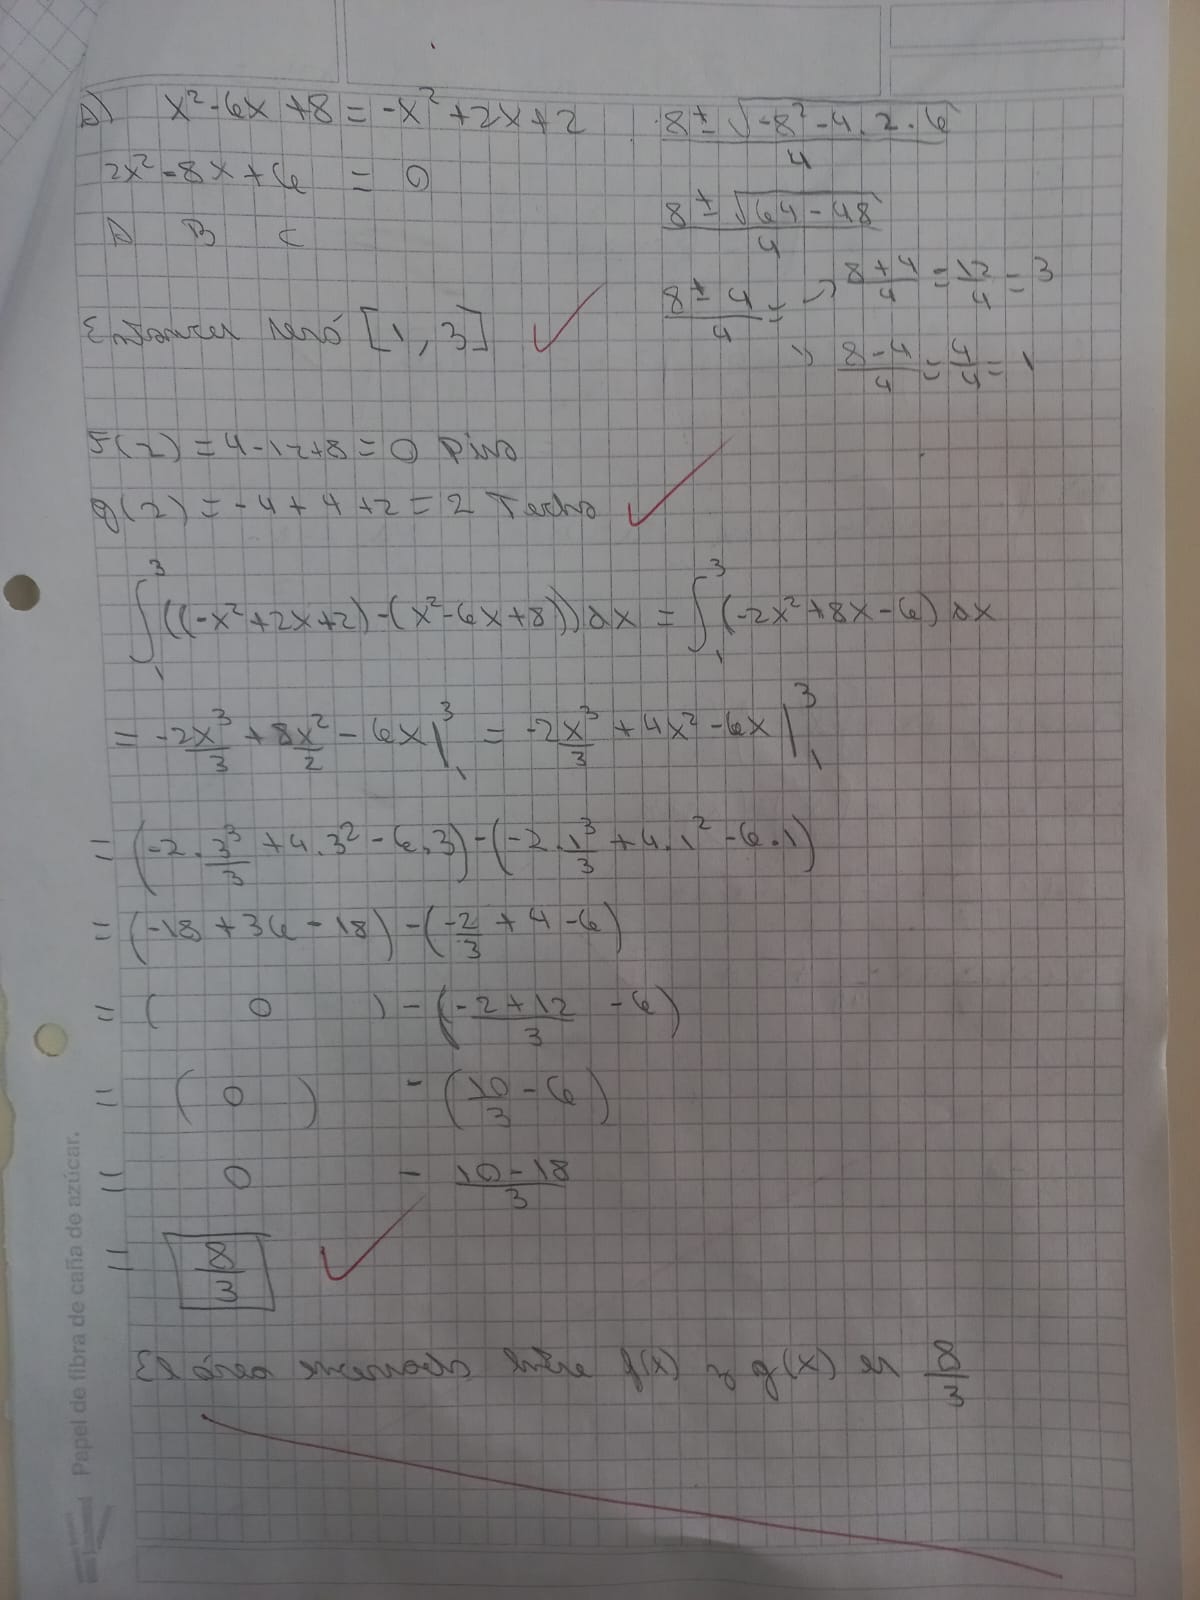 A) x² - 6x + 8 = -x² + 2x + 2
2x² - 8x + 6 = 0
A B C
8 ± √(-8² - 4 . 2 . 6) / 4
8 ± √(64 - 48) / 4
8 ± 4 / 4 = → 8 + 4 / 4 = 12 / 4 = 3
→ 8 - 4 / 4 = 4 / 4 = 1
Entonces será [1, 3]
F(2) = 4 - 12 + 8 = 0 Piso
g(2) = -4 + 4 + 2 = 2 Techo
∫₁³ ((-x² + 2x + 2) - (x² - 6x + 8)) dx = ∫₁³ (-2x² + 8x - 6) dx
= -2x³/3 + 8x²/2 - 6x |₁³ = -2x³/3 + 4x² - 6x |₁³
= (-2 . 3³/3 + 4 . 3² - 6 . 3) - (-2 . 1³/3 + 4 . 1² - 6 . 1)
= (-18 + 36 - 18) - (-2/3 + 4 - 6)
= ( 0 ) - (-2 + 12 / 3 - 6)
= ( 0 ) - (10/3 - 6)
= 0 - 10 - 18 / 3
= 8/3
El área encerrada entre f(x) y g(x) es 8/3
Papel de fibra de caña de azúcar.